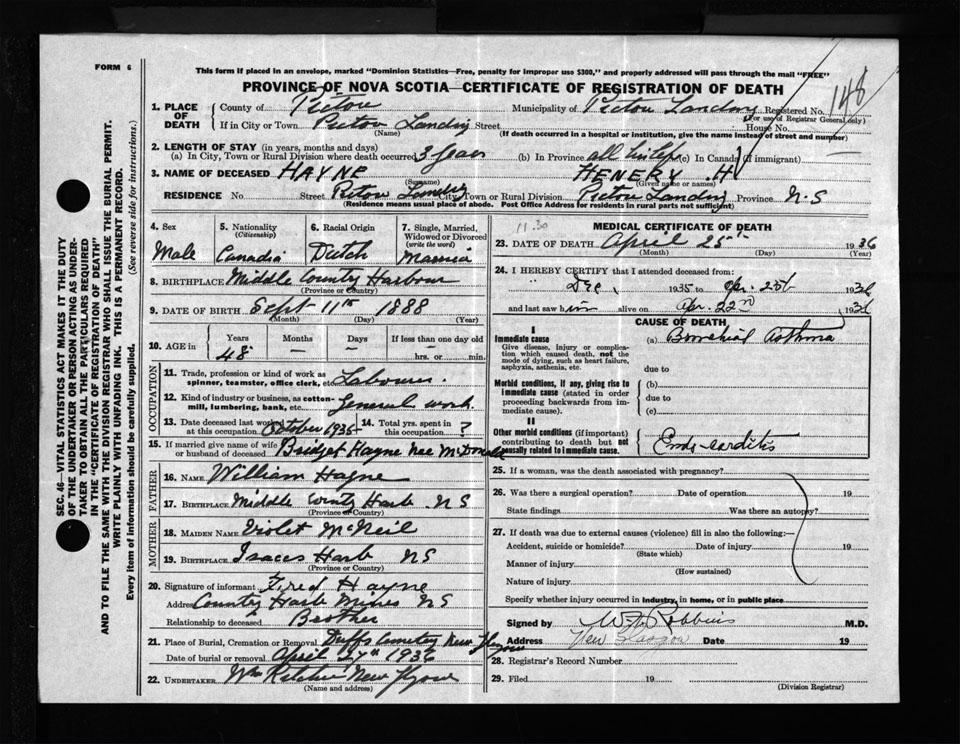 FORM 6
This form if placed in an envelope, marked "Dominion Statistics—Free, penalty for improper use $300," and properly addressed will pass through the mail "FREE"
PROVINCE OF NOVA SCOTIA—CERTIFICATE OF REGISTRATION OF DEATH
148
1. PLACE OF DEATH County of Pictou Municipality of Pictou Landing Registered No.
(For use of Registrar General only)
If in City or Town Pictou Landing Street House No.
(Name) (If death occurred in a hospital or institution, give the name instead of street and number)
2. LENGTH OF STAY (in years, months and days)
(a) In City, Town or Rural Division where death occurred 3 years (b) In Province all his life (c) In Canada (if immigrant) —
3. NAME OF DECEASED HAYNE HENERY .H
(Surname) (Given name or names)
RESIDENCE No Street Pictou Landing City, Town or Rural Division Pictou Landing Province N.S
(Residence means usual place of abode. Post Office Address for residents in rural parts not sufficient)
4. Sex 5. Nationality (Citizenship) 6. Racial Origin 7. Single, Married, Widowed or Divorced (write the word)
Male Canadia Dutch
8. BIRTHPLACE Middle Country Harbour
(Province or Country)
9. DATE OF BIRTH Sept 11th 1888
(Month) (Day) (Year)
10. AGE in Years Months Days If less than one day old
48 — — hrs. or min.
OCCUPATION
11. Trade, profession or kind of work as spinner, teamster, office clerk, etc. Labourer.
12. Kind of industry or business, as cotton-mill, lumbering, bank, etc. General work.
13. Date deceased last worked at this occupation October 1935 14. Total yrs. spent in this occupation ?
15. If married give name of wife or husband of deceased Bridget Hayne nee McDonald
FATHER
16. NAME William Hayne
17. BIRTHPLACE Middle County Harb NS
(Province or Country)
MOTHER
18. MAIDEN NAME Violet McNeil
19. BIRTHPLACE Isaacs Harb NS
(Province or Country)
20. Signature of informant Fred Hayne
Address Country Harb Mines NS
Relationship to deceased Brother
21. Place of Burial, Cremation or Removal Duffs Cemetery New Glasgow
Date of burial or removal April 27th 1936
22. UNDERTAKER Wm New Glasgow
(Name and address)
11.30
MEDICAL CERTIFICATE OF DEATH
23. DATE OF DEATH April 25th 1936
(Month) (Day) (Year)
24. I HEREBY CERTIFY that I attended deceased from:
Dec, 1935 to Apr. 25th 1936
and last saw him alive on Apr. 22nd 1936
CAUSE OF DEATH
I
Immediate cause (a) Bronchial Asthma
Give disease, injury or complication which caused death, not the mode of dying, such as heart failure, asphyxia, asthenia, etc.
due to
Morbid conditions, if any, giving rise to immediate cause (stated in order proceeding backwards from immediate cause).
(b)
due to
(c)
II
Other morbid conditions (if important) contributing to death but not causally related to immediate cause. Endo-carditis
25. If a woman, was the death associated with pregnancy?
26. Was there a surgical operation? Date of operation 19
State findings Was there an autopsy?
27. If death was due to external causes (violence) fill in also the following:—
Accident, suicide or homicide? Date of injury 19
(State which)
Manner of injury
(How sustained)
Nature of injury
Specify whether injury occurred in industry, in home, or in public place
Signed by Robbins M.D.
Address New Glasgow Date 19
28. Registrar's Record Number
29. Filed 19
(Division Registrar)
SEC. 46—VITAL STATISTICS ACT MAKES IT THE DUTY
OF THE UNDERTAKER OR PERSON ACTING AS UNDER-
TAKER TO OBTAIN ALL THE PARTICULARS REQUIRED
IN THE "CERTIFICATE OF REGISTRATION OF DEATH"
AND TO FILE THE SAME WITH THE DIVISION REGISTRAR WHO SHALL ISSUE THE BURIAL PERMIT.
WRITE PLAINLY WITH UNFADING INK. THIS IS A PERMANENT RECORD.
Every item of information should be carefully supplied. (See reverse side for instructions.)